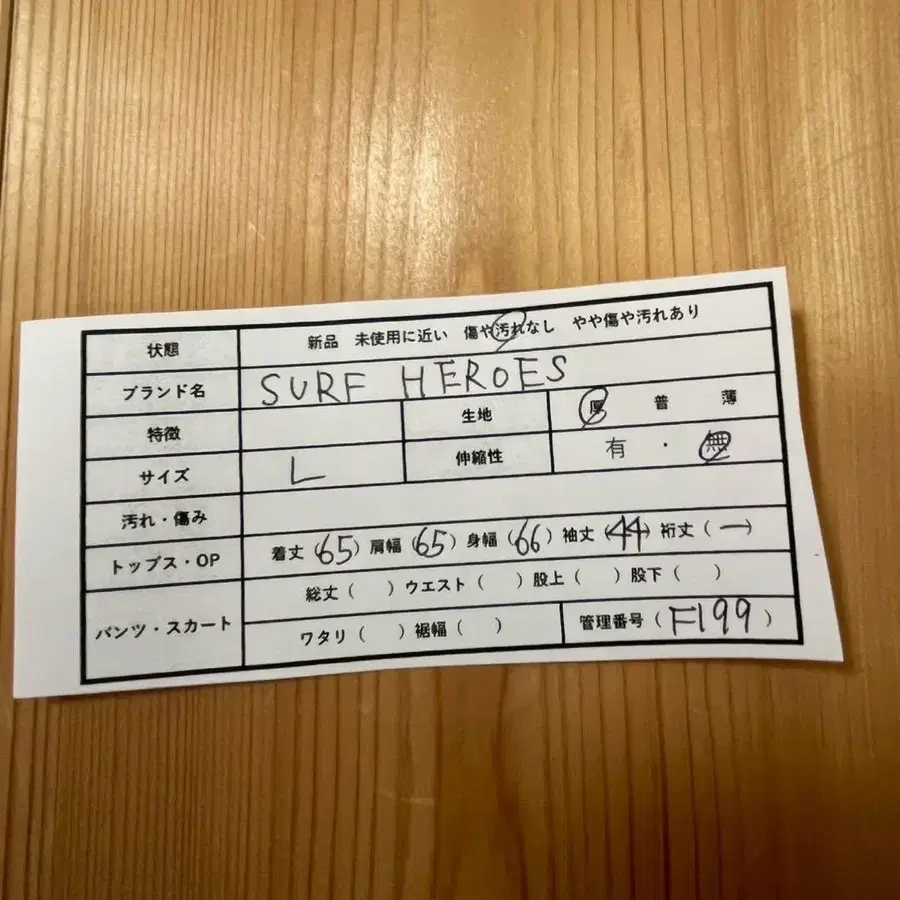 状態 新品 未使用に近い 傷や汚れなし やや傷や汚れあり
ブランド名 SURF HEROES
特徴 生地 厚 普 薄
サイズ L 伸縮性 有 ・ 無
汚れ・傷み
トップス・OP 着丈 (65) 肩幅 (65) 身幅 (66) 袖丈 (44) 裄丈 (ー)
パンツ・スカート 総丈 ( ) ウエスト ( ) 股上 ( ) 股下 ( )
ワタリ ( ) 裾幅 ( ) 管理番号 (F199)